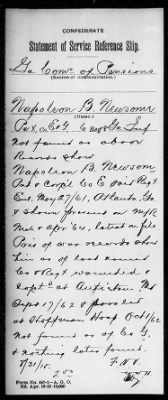 CONFEDERATE
Statement of Service Reference Slip.
Ga Comr. of Pensions
(Source of communication.)
Napoleon B. Newsome
(Name.)
Pvt, Co G, 6 Regt Ga Inf
not found as above
Records show
Napoleon B. Newsom
Pvt & Corpl Co C 6 Regt
Enl. May 27/61, Atlanta, Ga
& shown present on M/R
Mar & Apr 64, latest on file
Pris of war records show
him as of last named
Co & Regt wounded &
captd at Antietam Md
Sept 17/62 & paroled
at Hospl Oct 1/62
Not found as of Co G.
& nothing later found.
5/21/15.
Form No. 467-1—A. G. O.